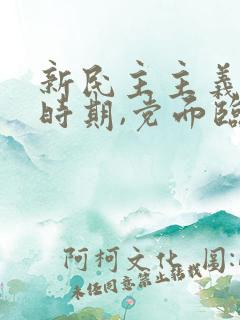 新民主主義
時期,党面臨
阿柯文化 图:
未经同意禁止转载